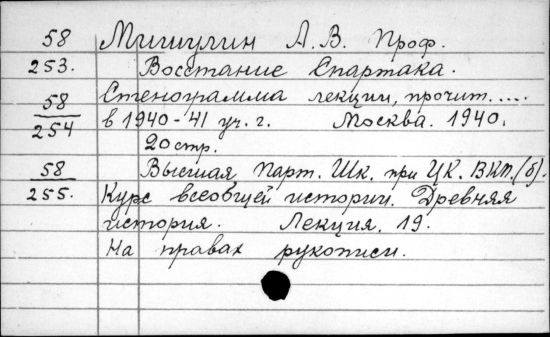 58 Мишулин А. В. Проф.
253. Восстание Спартака.
Стенограмма лекции, прочит.....
58
254 в 1940-'41 уч. г. Москва. 1940.
20 стр.
58 Высшая Парт. Шк. при ЦК. ВКП.(б).
255. Курс всеобщей истории. Древняя
история. Лекция. 19.
На правах рукописи.